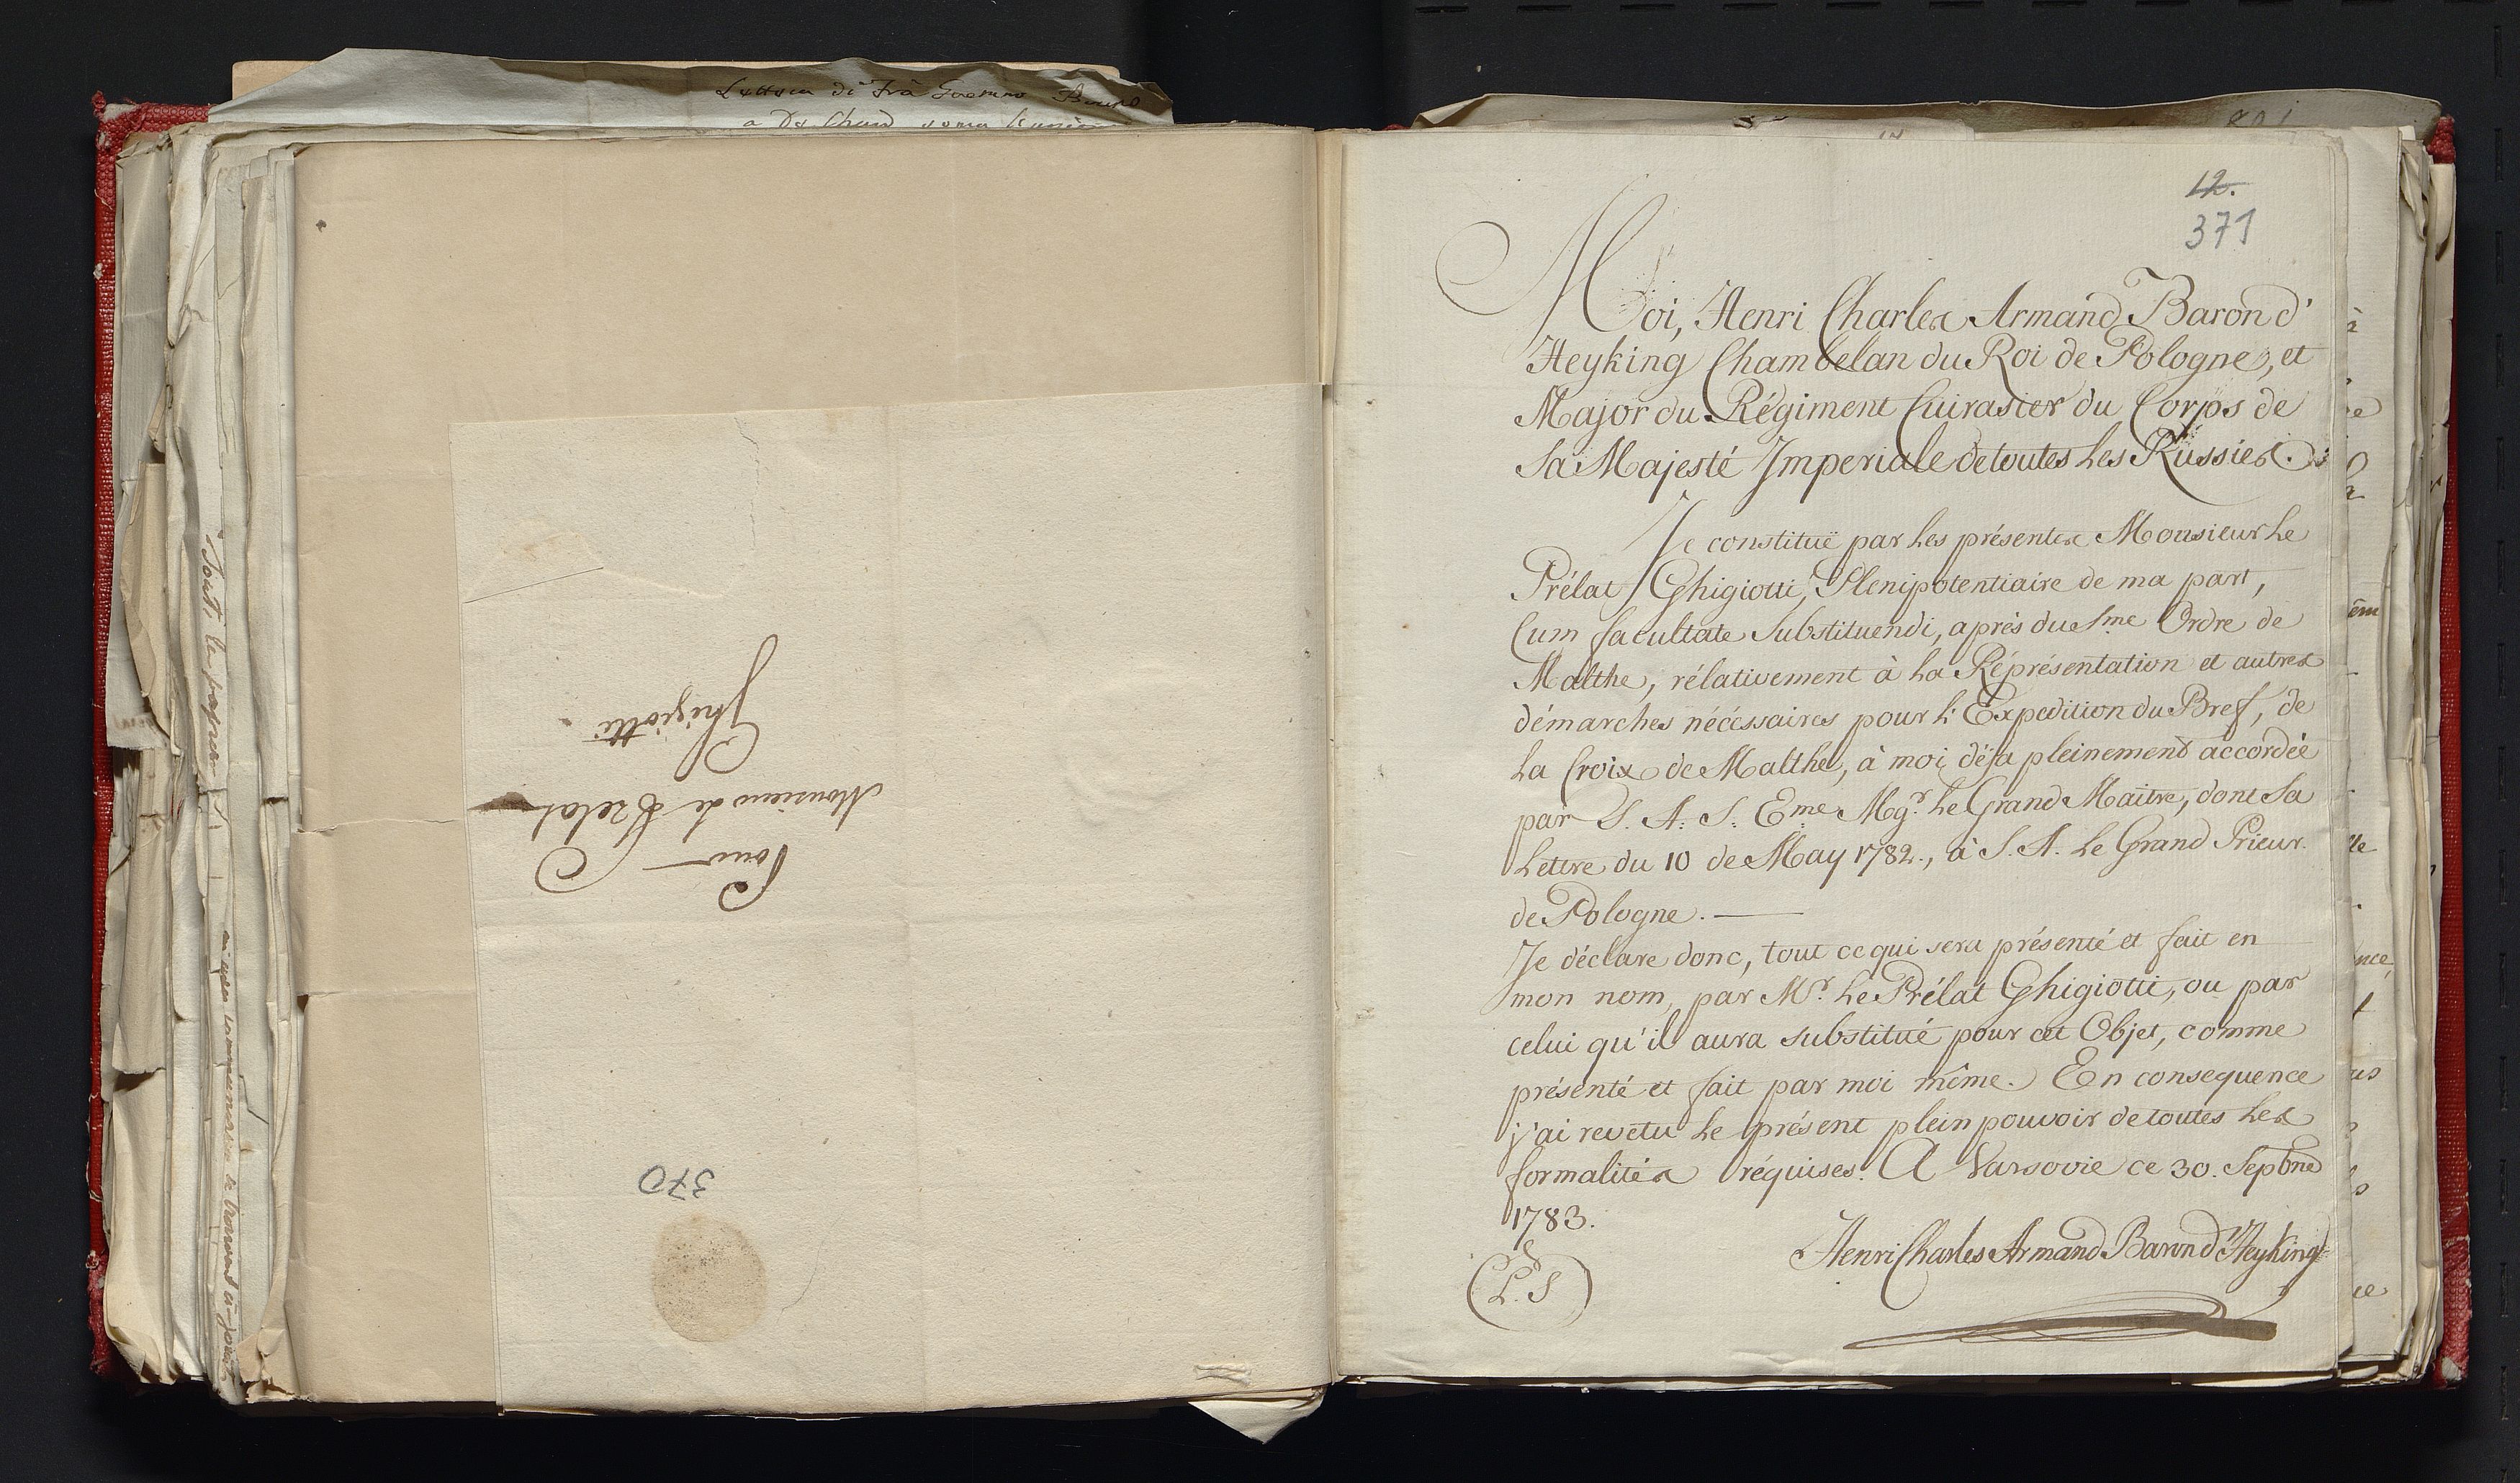 Pour
Monsieur de Prelat
Ghigiotti
370
12.
371
Moi, Henri Charles Armand Baron d'
Heyking Chambelan du Roi de Pologne, et
Major du Régiment Cuirasier du Corps de
Sa Majesté Imperiale de toutes Les Russies.
Je constituë par Les présentes Monsieur Le
Prélat Ghigiotti, Plenipotentiaire de ma part,
Cum facultate Substituendi, après du Sme Ordre de
Malthe, rélativement à La Réprésentation et autres
démarches nécéssaires pour L'Expedition du Bref, de
La Croix de Malthe, à moi déja pleinement accordée
par S. A. S. Eme Mgr. Le Grand Maitre, dont Sa
Lettre du 10 de May 1782., à S. A. Le Grand Prieur
de Pologne. —
Je déclare donc, tout ce qui sera présenté et fait en
mon nom, par Mr. Le Prélat Ghigiotti, ou par
celui qu'il aura substitué pour cet Objet, comme
présenté et fait par moi même. En consequence
j'ai revetu Le présent plein pouvoir de toutes Les
formalités réquises. A Varsovie ce 30. Sepbre
1783.
Henri Charles Armand Baron d'Heyking
(L. S)